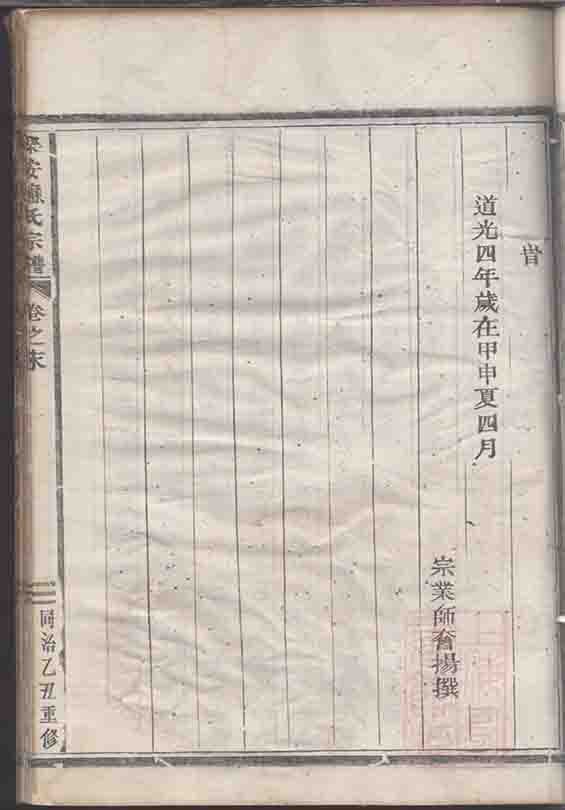 旹
道光四年歲在甲申夏四月
宗業師奮揚撰
梁安 氏宗譜
卷之末
同治乙丑重修